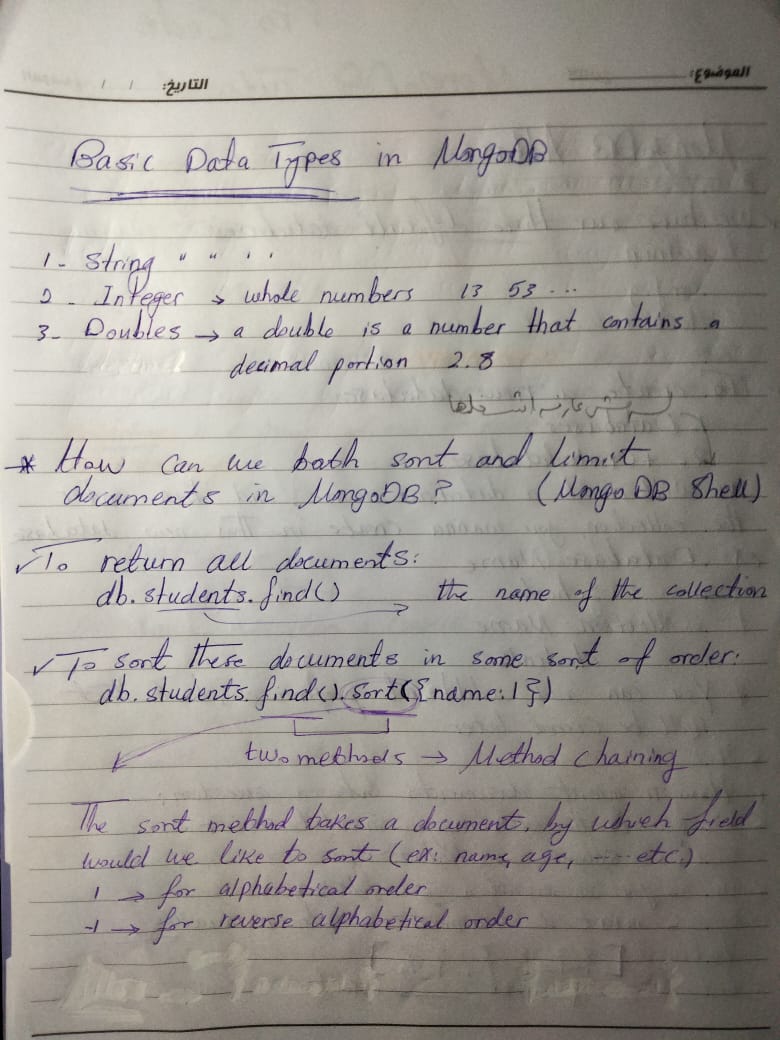 الموضوع:
التاريخ: / /
Basic Data Types in MongoDB
1- String " " ' '
2 - Integer → whole numbers 13 53 ...
3- Doubles → a double is a number that contains a
decimal portion 2.8
* How can we both sort and limit
documents in MongoDB? (Mongo DB Shell)
✓ To return all documents:
db.students.find() → the name of the collection
✓ To sort these documents in some sort of order:
db.students.find().sort({name:1})
two methods → Method chaining
The sort method takes a document, by which field
would we like to sort (ex: name, age, ---- etc.)
1 → for alphabetical order
-1 → for reverse alphabetical order